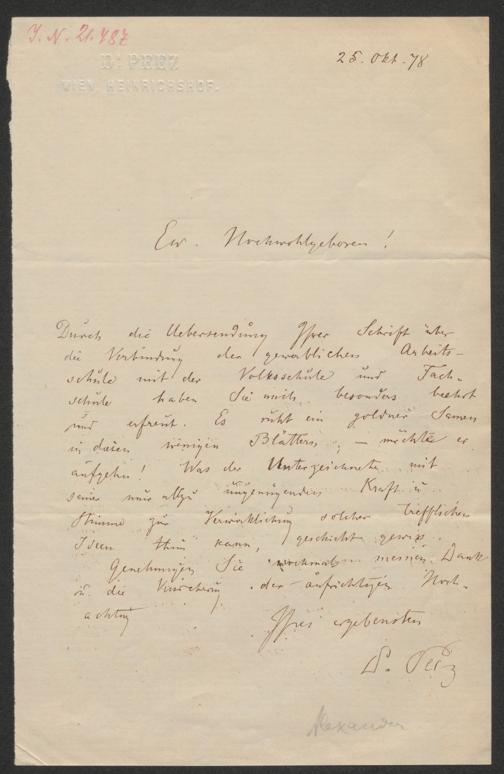 J. N. 21.487
Dr. PEEZ
WIEN, HEINRICHSHOF.
25. Okt. 78
Ew. Hochwohlgeboren!
Durch die Uebersendung Ihrer Schrift über
die Verbindung der gewerblichen Arbeits-
schule mit der Volksschule und Fach-
schule haben Sie mich besonders beehrt
und erfreut. Es ruht ein goldner Samen
in diesen wenigen Blättern; – möchte er
aufgehn! Was der Unterzeichnete mit
seiner nur allzu ungenügenden Kraft u
Stimme zur Verwirklichung solcher trefflichen
Ideen thun kann, geschieht gewiß.
Genehmigen Sie nochmals meinen Dank
u. die Versicherung der aufrichtigen Hoch-
achtung
Ihres ergebensten
Dr. Peez
Alexander